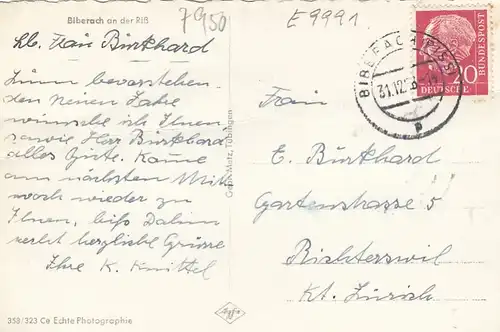 Biberach an der Riß
7950
E 9991
lb. Frau Burkhard
Zum bevorstehen
den neuen Jahre
wünsche ich Ihnen
sowie Herr Burkhard
alles Gute. Komme
am nächsten Mitt
woch wieder zu
Ihnen, biss Dahin
recht herzliche Grüsse
Ihre K. Knittel
358/323 Ce Echte Photographie
Gebr. Metz, Tübingen
Agfa
BIBERACH (RISS)
31.12.
20
DEUTSCHE
BUNDESPOST
Frau
E. Burkhard
Gartenstrasse 5
Richterswil
Kt. Zürich